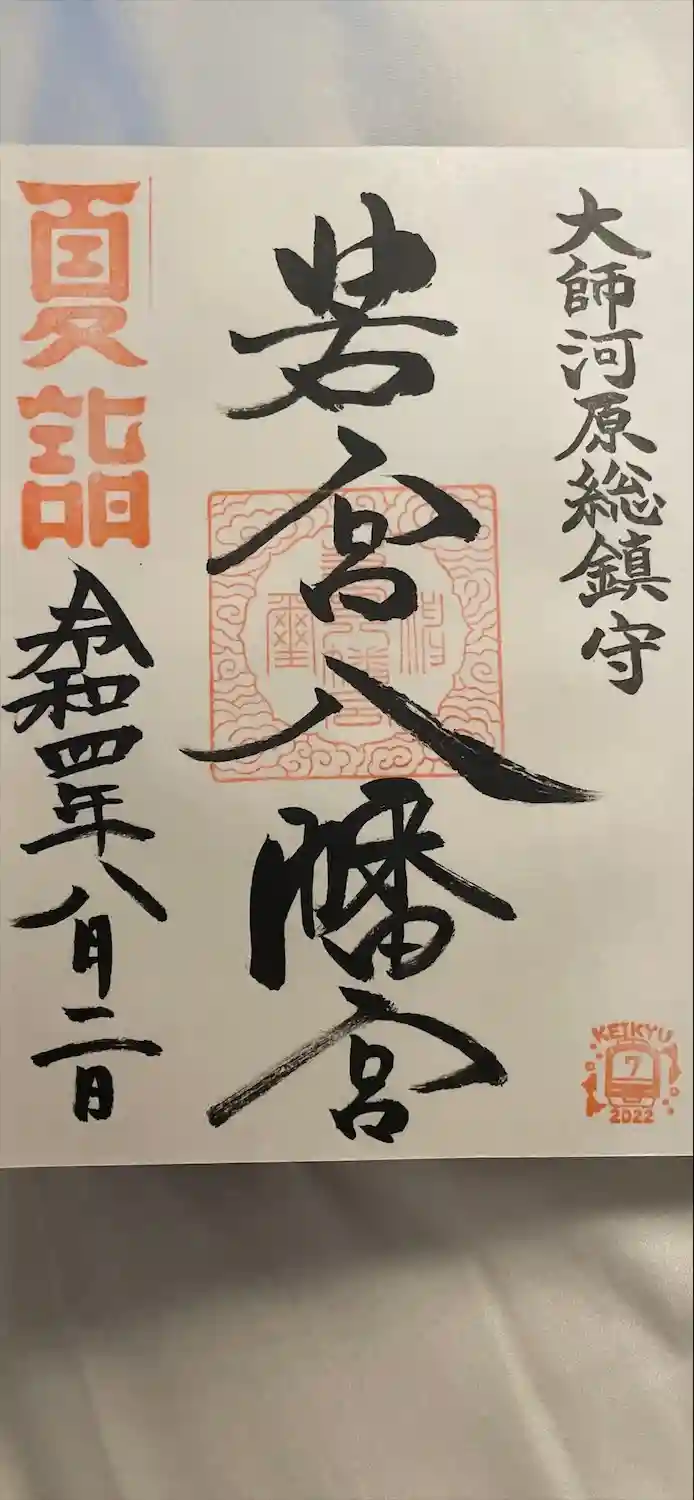 大師河原総鎮守
若宮八幡宮
夏詣
令和四年八月二日
KEIKYU
7
2022